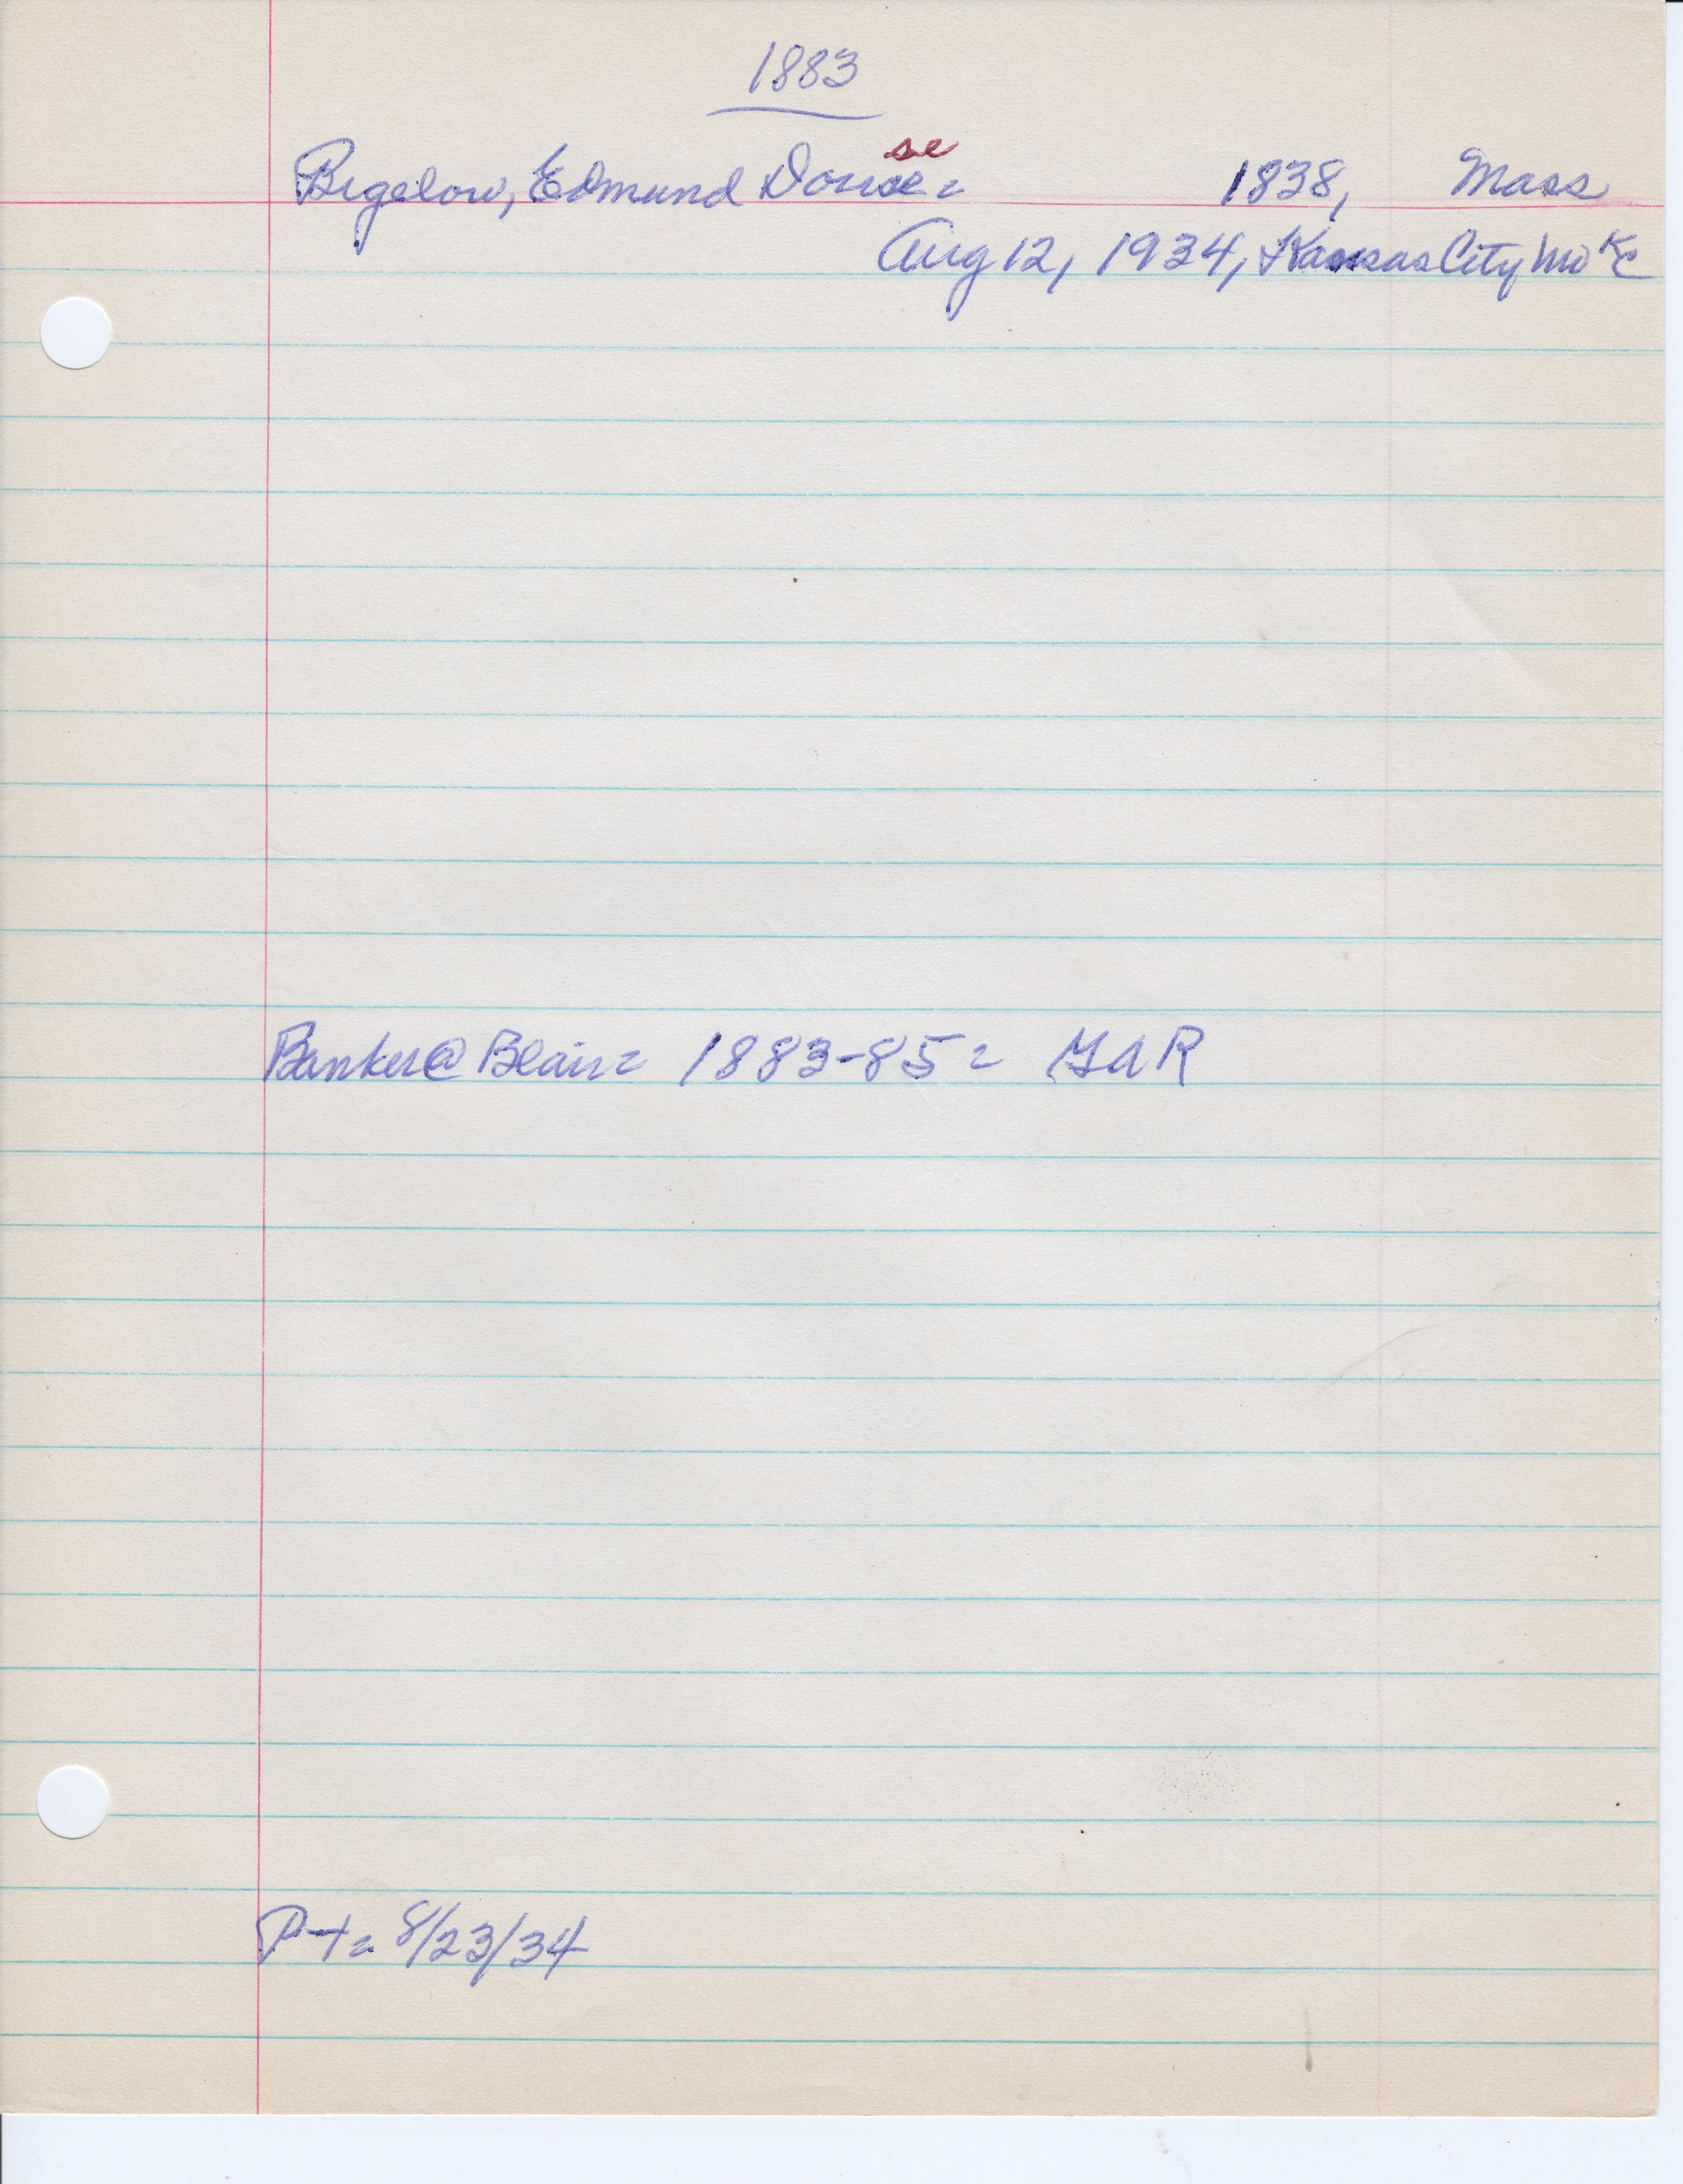 1883
se
Bigelow, Edmund Douse = 1838, Mass
Aug 12, 1934, Kansas City Mo KC
Banker @ Blair = 1883-85 = GAR
P-t = 8/23/34